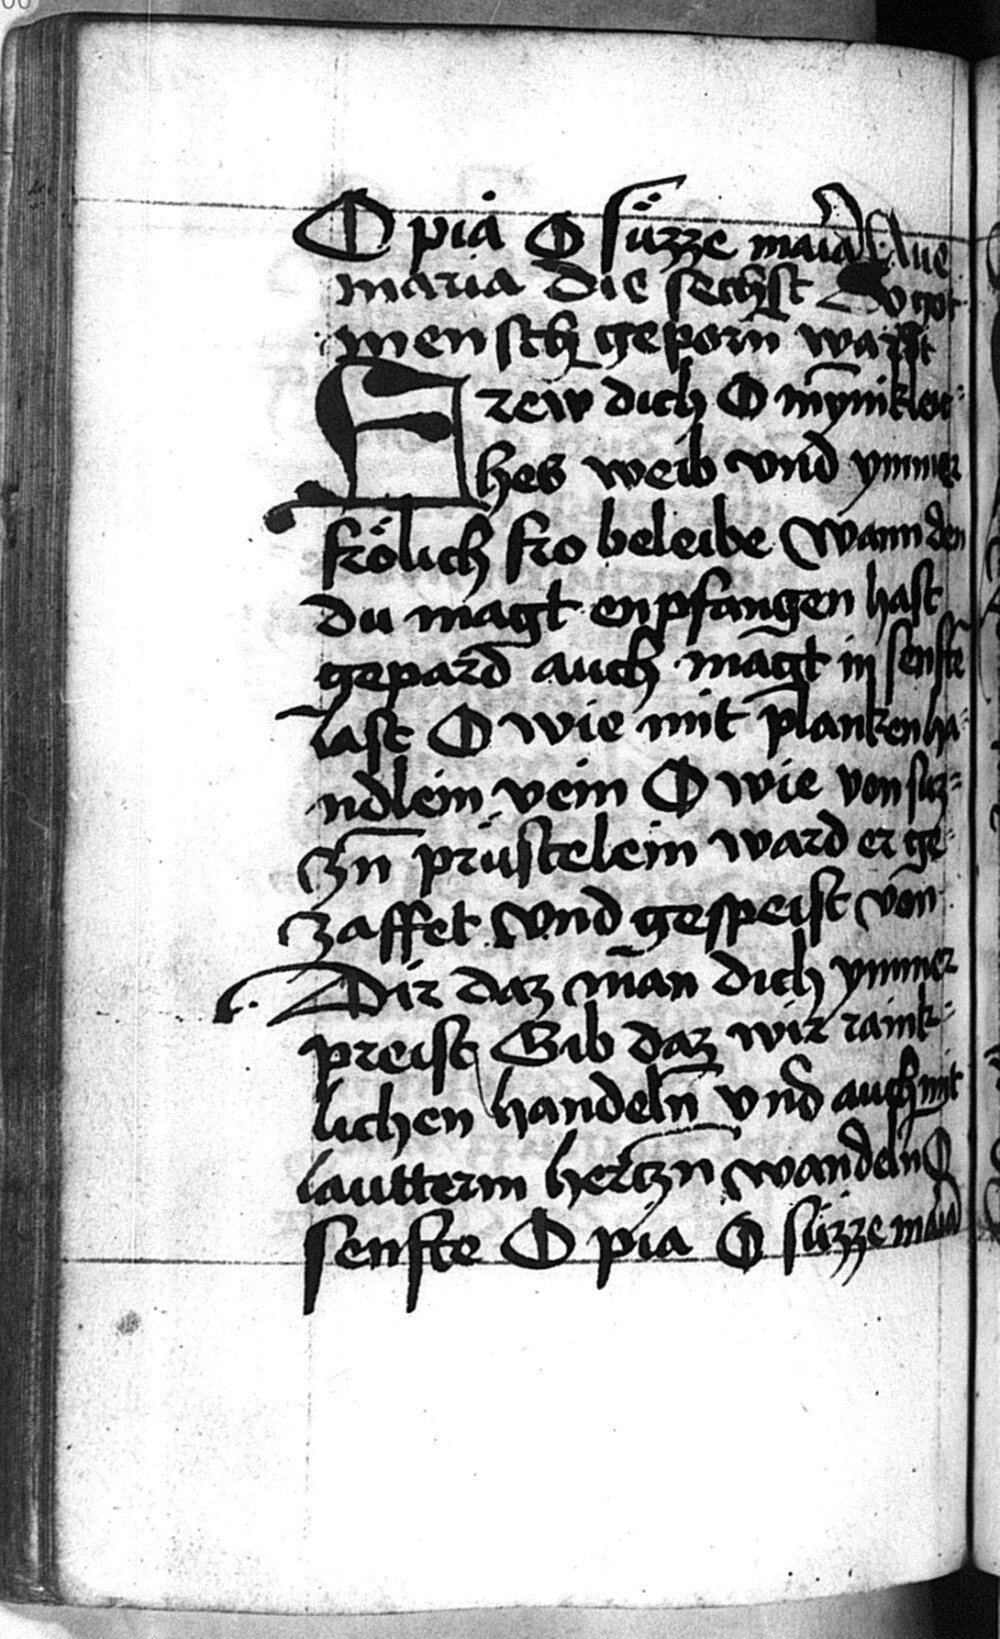 O pia O süzze maid Aue
maria Die sechst Do got
mensch geporn wartt
Frew dich O mynikleic-
hes weib vnd ymmer
frölich fro beleibe Wann den
du magt enpfangen hast
gepard auch magt in senfte
last O wie mit planken ha-
ndlein vein O wie von süz-
zn prüstelein ward er ge-
zaffet Vnd gespeist von
Dir daz man dich ymmer
preist Gib daz wir raink-
lichen handeln vnd auch mit
lautterm hertzn wandeln O
senfte O pia O süzze maid